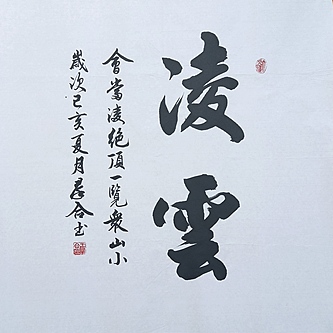 凌雲
會當凌絕頂一覽衆山小
歲次己亥夏月